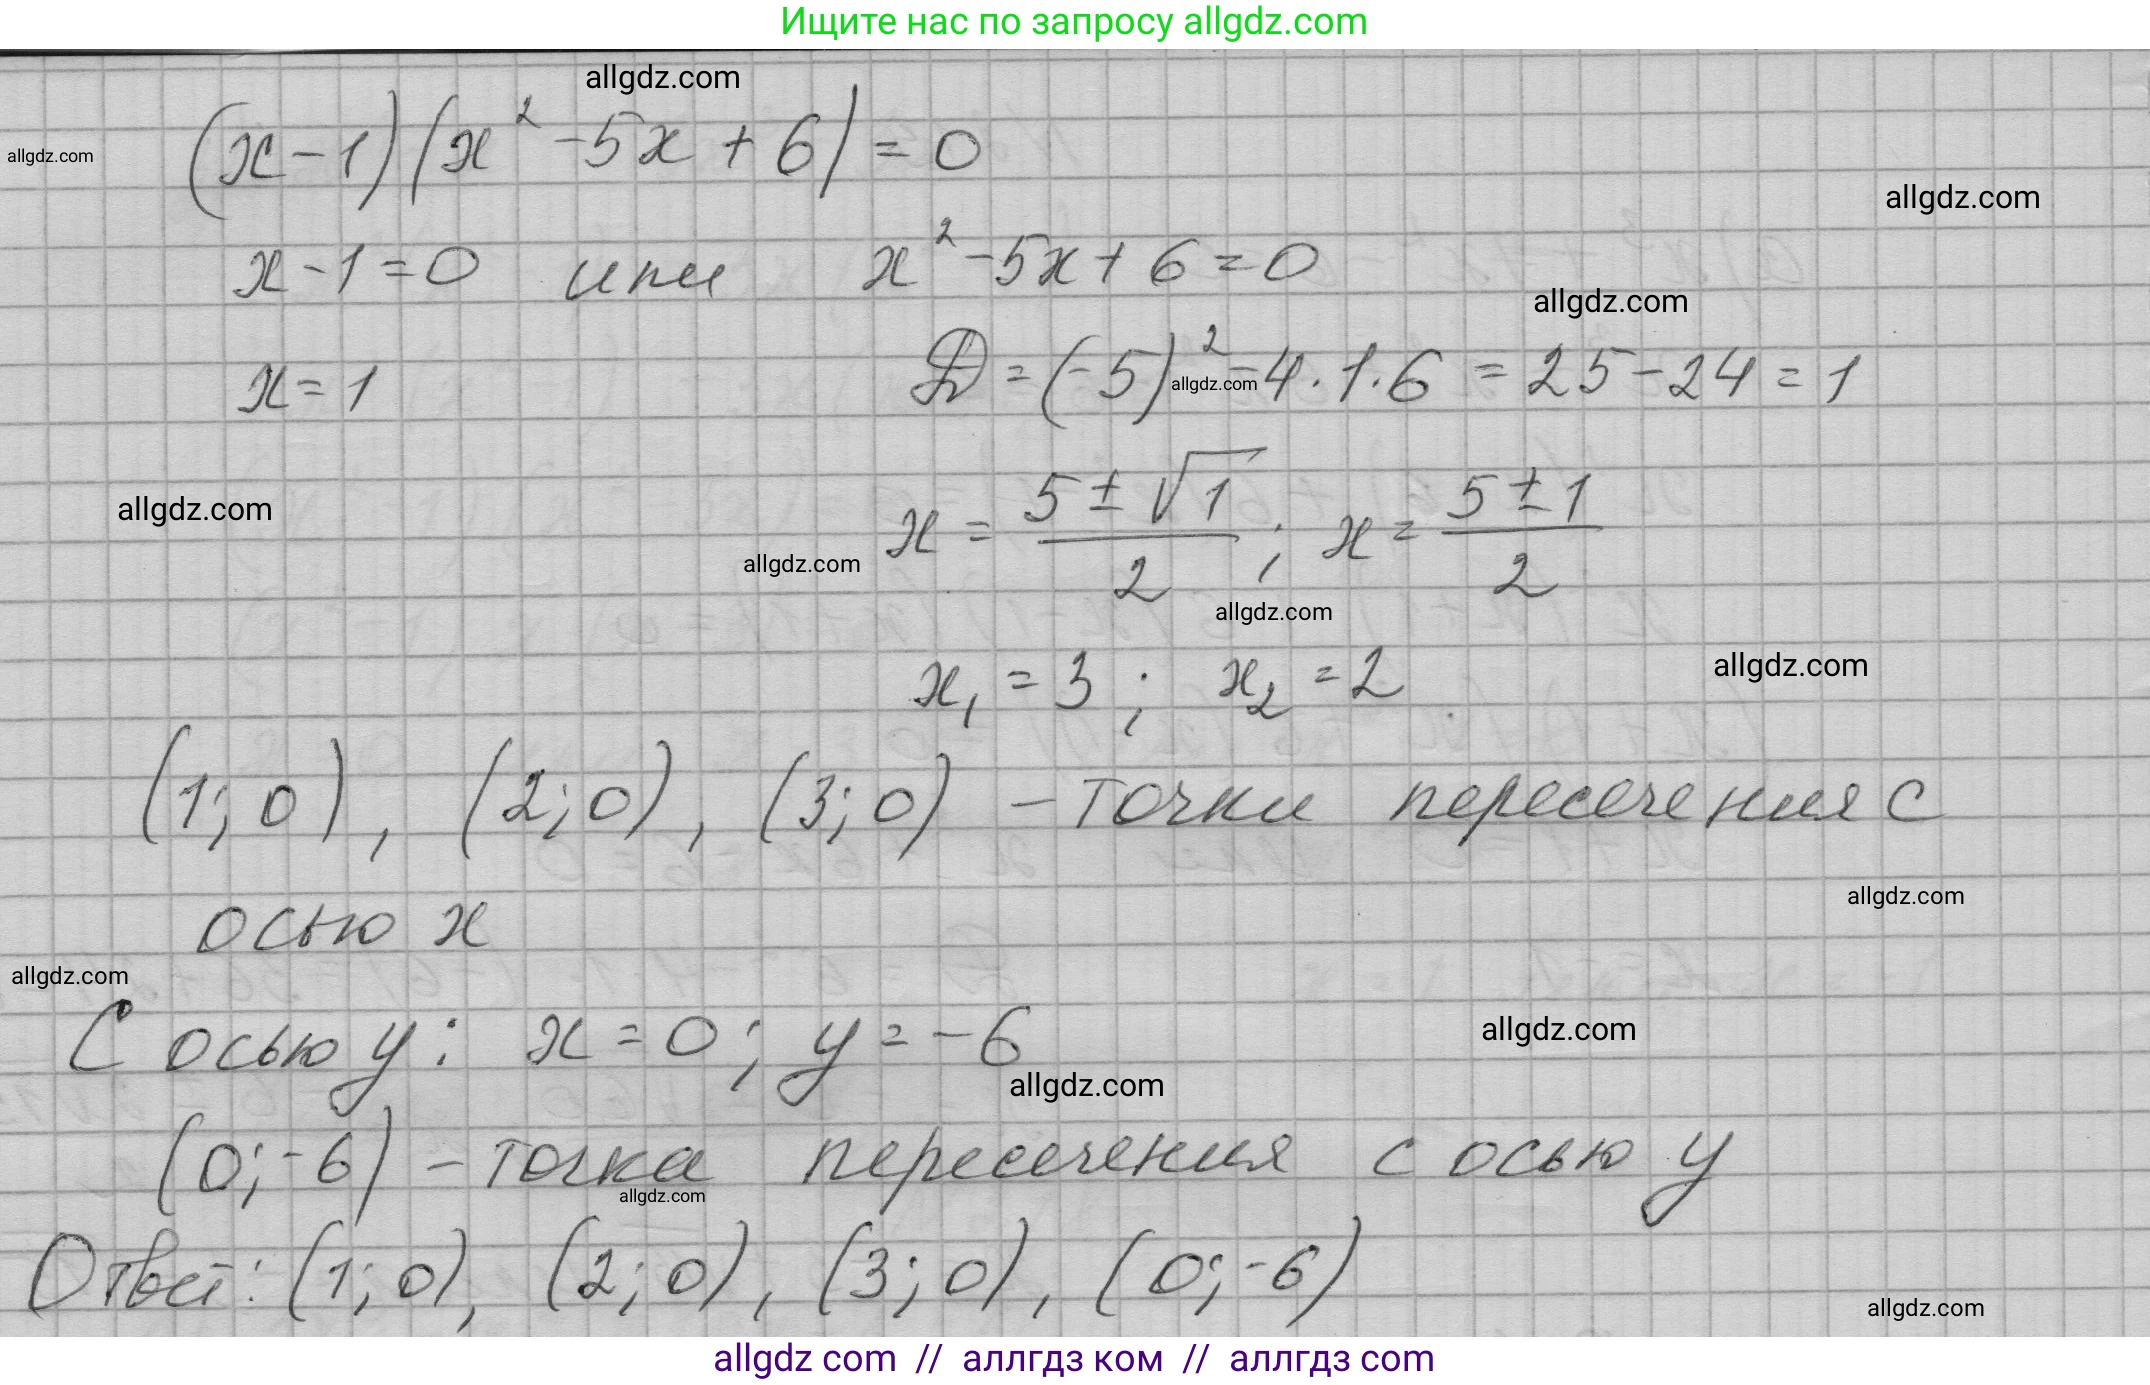 Ищите нас по запросу allgdz.com
allgdz.com
(x-1)(x²-5x+6)=0
allgdz.com
allgdz.com
x-1=0 или x²-5x+6=0
allgdz.com
x=1 D=(-5)²-4·1·6=25-24=1
allgdz.com
allgdz.com
x=(5±√1)/2; x=(5±1)/2
allgdz.com
allgdz.com
x₁=3; x₂=2
allgdz.com
(1;0), (2;0), (3;0) - точки пересечения с
allgdz.com
осью x
allgdz.com
С осью y: x=0; y=-6
allgdz.com
allgdz.com
(0;-6) - точка пересечения с осью y
allgdz.com
Ответ: (1;0), (2;0), (3;0), (0;-6)
allgdz.com
allgdz com // аллгдз ком // аллгдз com